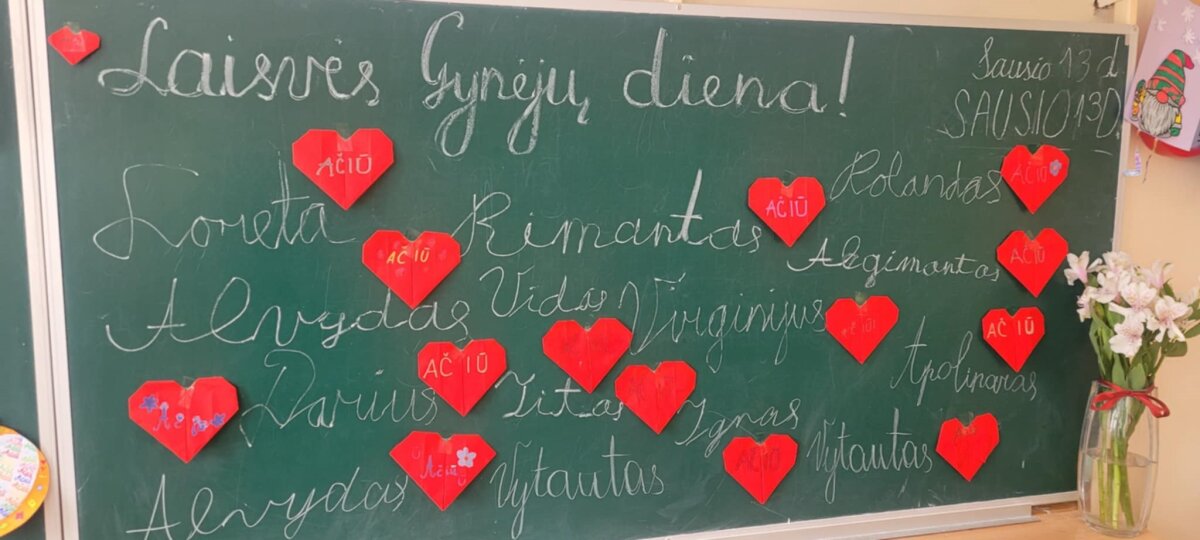 Laisvės Gynėjų diena!
Sausio 13 d
SAUSIO 13D.
AČIŪ
Rolandas
AČIŪ
Loreta
Rimantas
AČIŪ
AČIŪ
Algimantas
AČIŪ
Alvydas
Vidas
Virginijus
AČIŪ
AČIŪ
AČIŪ
Darius
Titas
Ignas
Apolinaras
Alvydas
Ačiū
Vytautas
AČIŪ
Vytautas